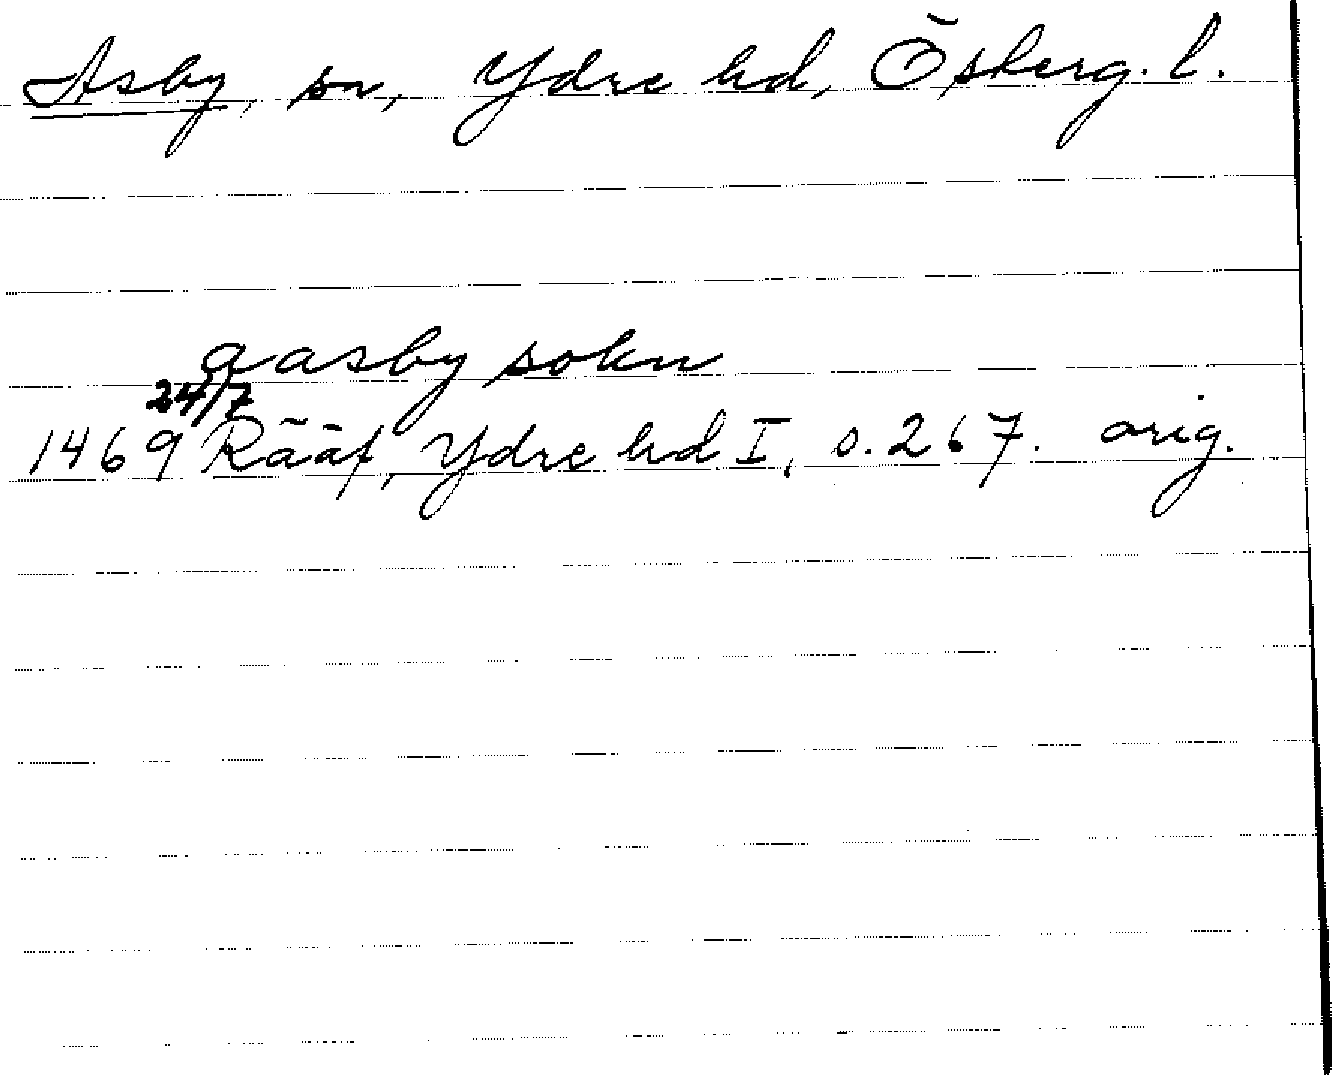 Asby, sn, Ydre hd, Österg. l.
aasby sokn
24/7
1469 Rääf, Ydre hd I, s. 267. orig.